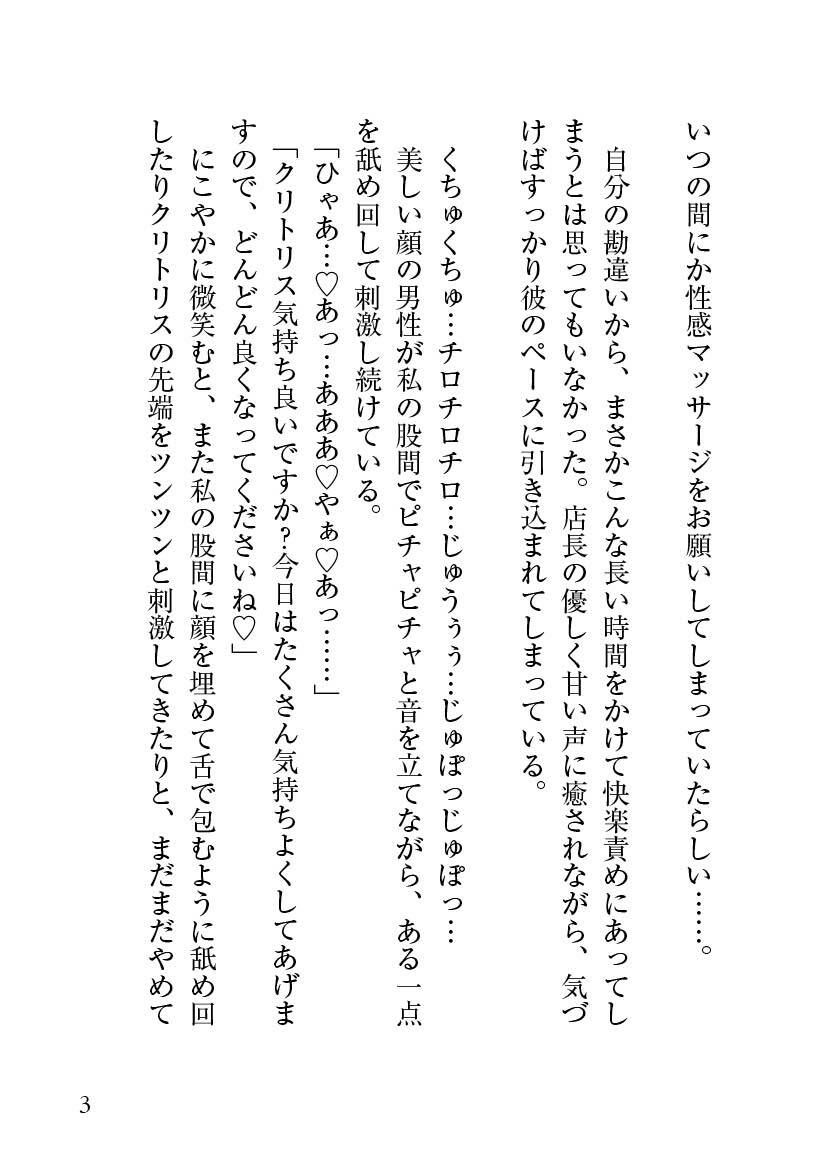 いつの間にか性感マッサージをお願いしてしまっていたらしい……。
自分の勘違いから、まさかこんな長い時間をかけて快楽責めにあってし
まうとは思ってもいなかった。店長の優しく甘い声に癒されながら、気づ
けばすっかり彼のペースに引き込まれてしまっている。
くちゅくちゅ…チロチロチロ…じゅうぅぅ…じゅぽっじゅぽっ…
美しい顔の男性が私の股間でピチャピチャと音を立てながら、ある一点
を舐め回して刺激し続けている。
「ひゃあ…♡あっ…あああ♡やぁ♡あっ……」
「クリトリス気持ち良いですか？今日はたくさん気持ちよくしてあげま
すので、どんどん良くなってくださいね♡」
にこやかに微笑むと、また私の股間に顔を埋めて舌で包むように舐め回
したりクリトリスの先端をツンツンと刺激してきたりと、まだまだやめて
3